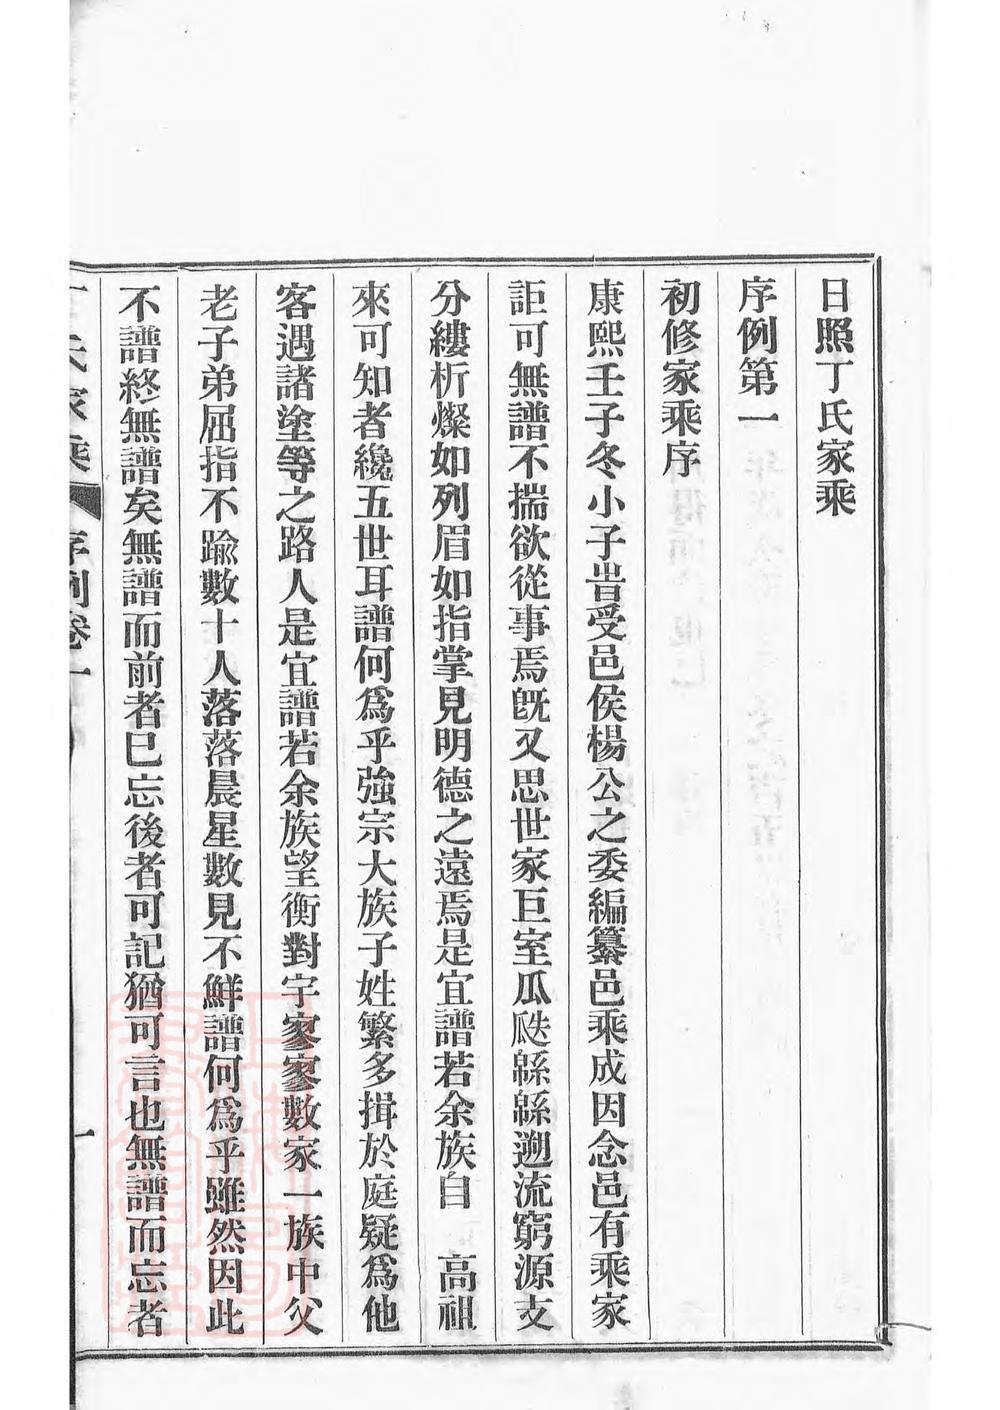 日照丁氏家乘
序例第一
初修家乘序
康熙壬子冬小子旹受邑侯楊公之委編纂邑乘成因念邑有乘家
詎可無譜不揣欲從事焉既又思世家巨室瓜瓞緜緜遡流窮源支
分縷析燦如列眉如指掌見明德之遠焉是宜譜若余族自　高祖
來可知者纔五世耳譜何爲乎強宗大族子姓繁多揖於庭疑爲他
客遇諸塗等之路人是宜譜若余族望衡對宇寥寥數家一族中父
老子弟屈指不踰數十人落落晨星數見不鮮譜何爲乎雖然因此
不譜終無譜矣無譜而前者已忘後者可記猶可言也無譜而忘者
丁氏家乘　序例卷一　一